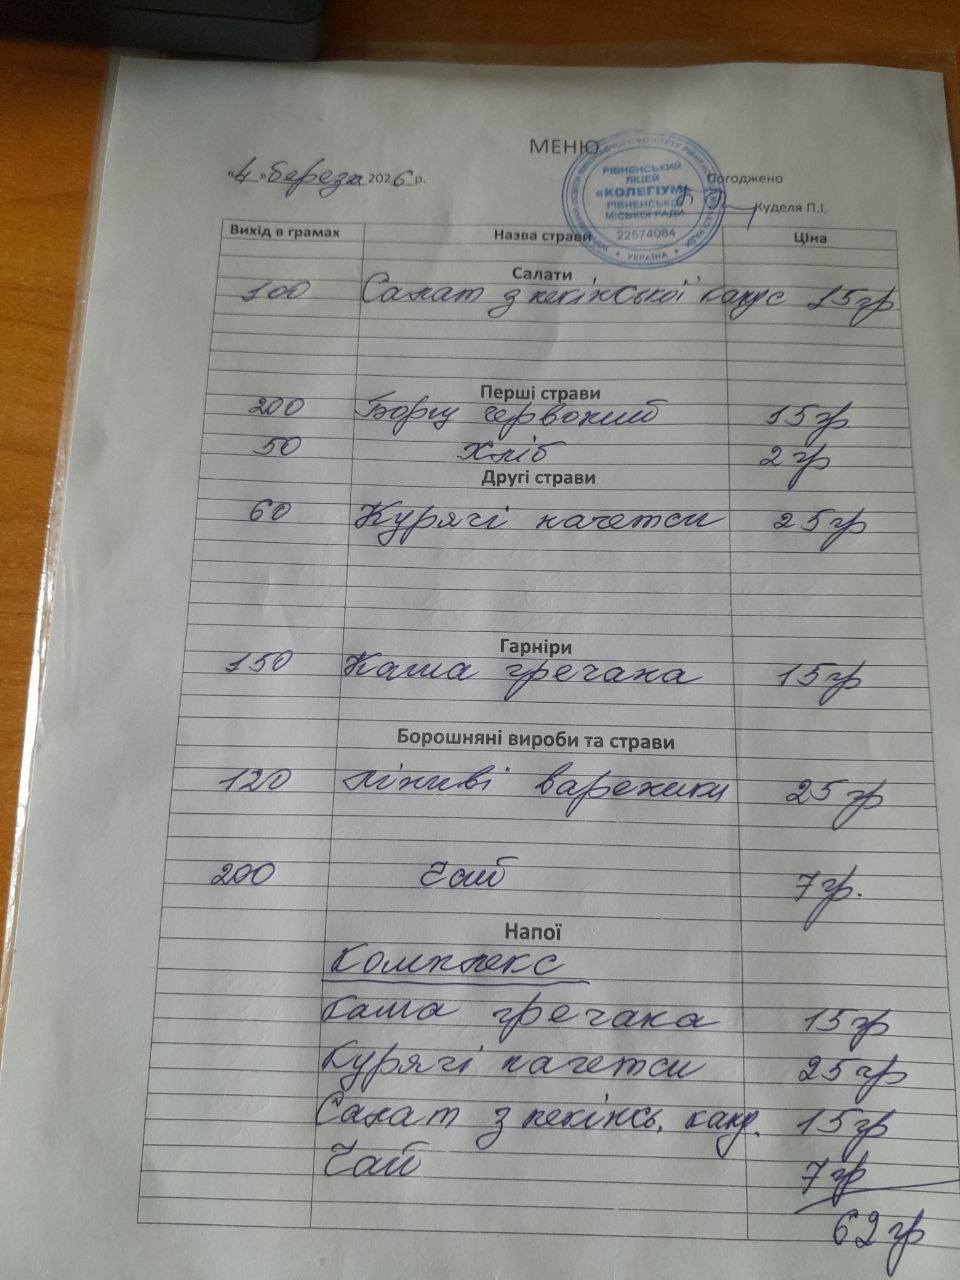 МЕНЮ
«4» березня 2026 р.
Погоджено
Куделя П.І.
РІВНЕНСЬКИЙ
ЛІЦЕЙ
«КОЛЕГІУМ»
РІВНЕНСЬКОЇ
МІСЬКОЇ РАДИ
22574084
УКРАЇНА
Вихід в грамах Назва страви Ціна
Салати
100 Салат з пекінської капус 15гр
Перші страви
200 Борщ червоний 15гр
50 Хліб 2гр
Другі страви
60 Курячі нагетси 25гр
Гарніри
150 Каша гречана 15гр
Борошняні вироби та страви
120 Ліниві вареники 25гр
200 Чай 7гр.
Напої
Комплекс
Каша гречана 15гр
Курячі нагетси 25гр
Салат з пекінсь. капу. 15гр
Чай 7гр
62гр